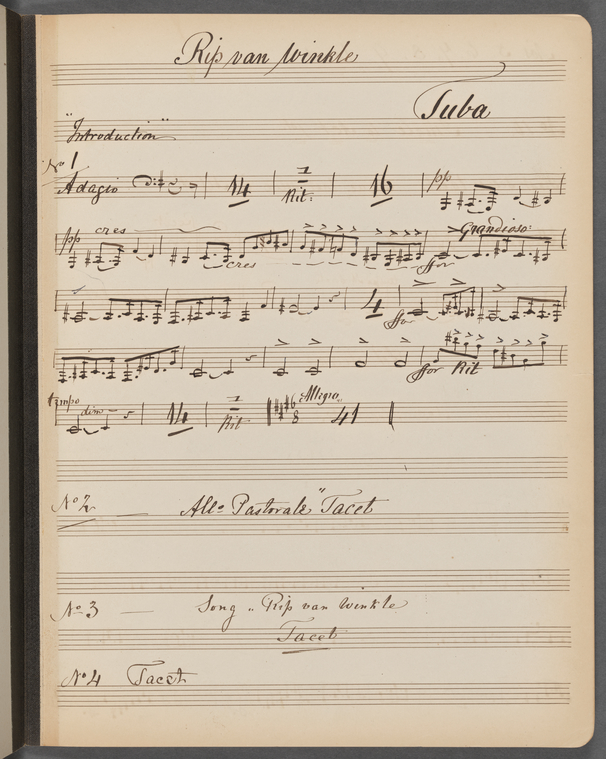 Rip van Winkle
Tuba
"Introduction"
No 1
Adagio 14 1 Rit: 16 pp
pp cres cres ffor Grandioso:
4 ffor
ffor Rit
tempo dim 14 1 Rit 6 8 Allegro 41
No 2 — Allo Pastorale" Tacet
No 3 — Song „ Rip van Winkle
Tacet
No 4 Tacet